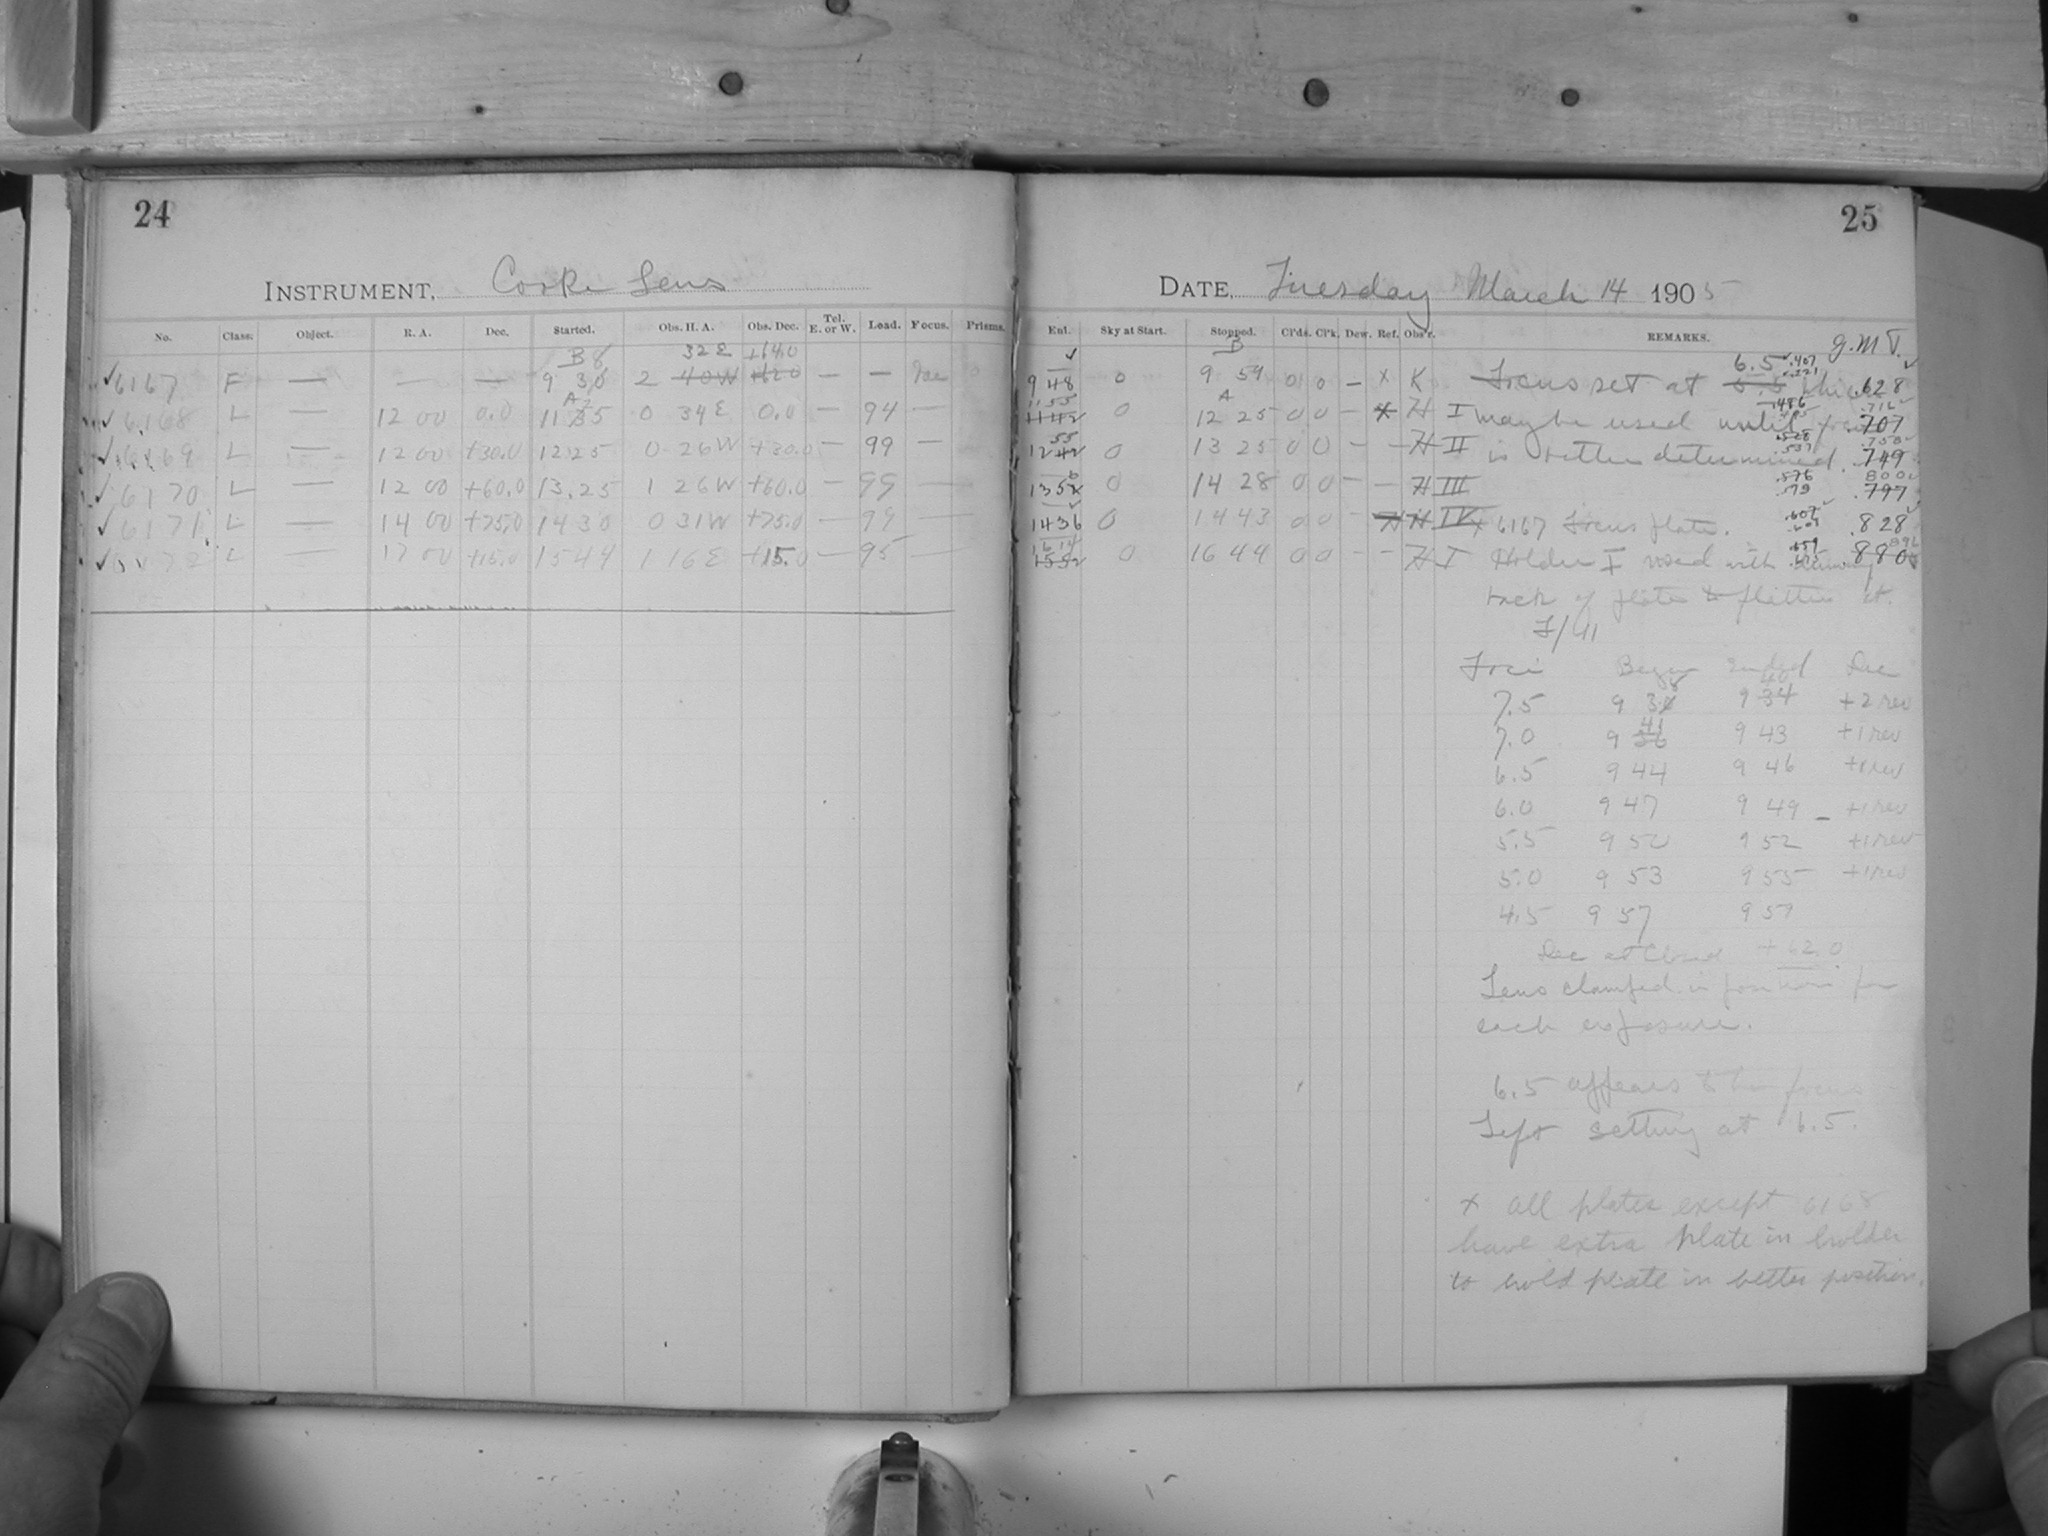 24
INSTRUMENT, Cooke Lens
No. Class. Object. R. A. Dec. Started. Obs. H. A. Obs. Dec. Tel. E. or W. Lead. Focus. Prisms.
B 8 32 E +14.0
6167 F — — — 9 30 2 40 W +62 0 — —
6168 L — 12 00 0.0 11 35 0 34 E 0.0 — 94 —
6169 L — 12 00 +30.0 12 25 0 26 W +30.0 — 99 —
6170 L — 12 00 +60.0 13.25 1 26 W +60.0 — 99 —
6171 L — 14 00 +75.0 14 30 0 31 W +75.0 — 99 —
6172 L — 17 00 +15.0 15 44 1 16 E +15.0 — 95 —
25
DATE, Tuesday March 14 1905
Ent. Sky at Start. Stopped. Cl'ds. Cl'k. Dew. Ref. Obs'r. REMARKS. G.M.T.
9 48 0 9 59 0 0 — x K Focus set at 6.5 which .628
0 12 25 0 0 — H I may be used until focus .707
0 13 25 0 0 — — H II is better determined. .749
0 14 28 0 0 — — H III .797
14 36 0 14 43 0 0 — H IV x 6167 Focus plate. .828
0 16 44 0 0 — — H I Holder I used with .880
back of plate to flatten it.
F/11
Foci Began Ended Dec
7.5 9 38 9 40 +2 rev
7.0 9 41 9 43 +1 rev
6.5 9 44 9 46 +1 rev
6.0 9 47 9 49 — +1 rev
5.5 9 50 9 52 +1 rev
5.0 9 53 9 55 +1 rev
4.5 9 57 9 59
Dec at Close +62.0
Lens clamped in position for
each exposure.
6.5 appears to be focus
Left setting at 6.5.
x All plates except 6168
have extra plate in holder
to hold plate in better position.